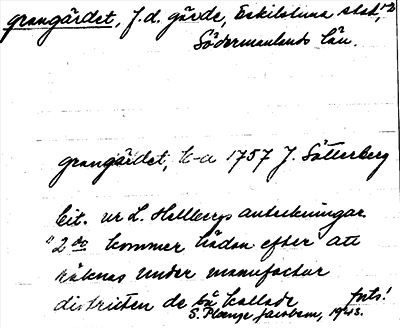 grangärdet, f.d. gärde, Eskilstuna stad,
Södermanlands län.
grangärdet, k-a 1757 J. Sätterberg
Cit. ur L. Hellbergs anteckningar
"2 do kommer hädan efter att
räknas under manufactur
districten de så kallade forts!
S. Plænge Jacobson, 1943.